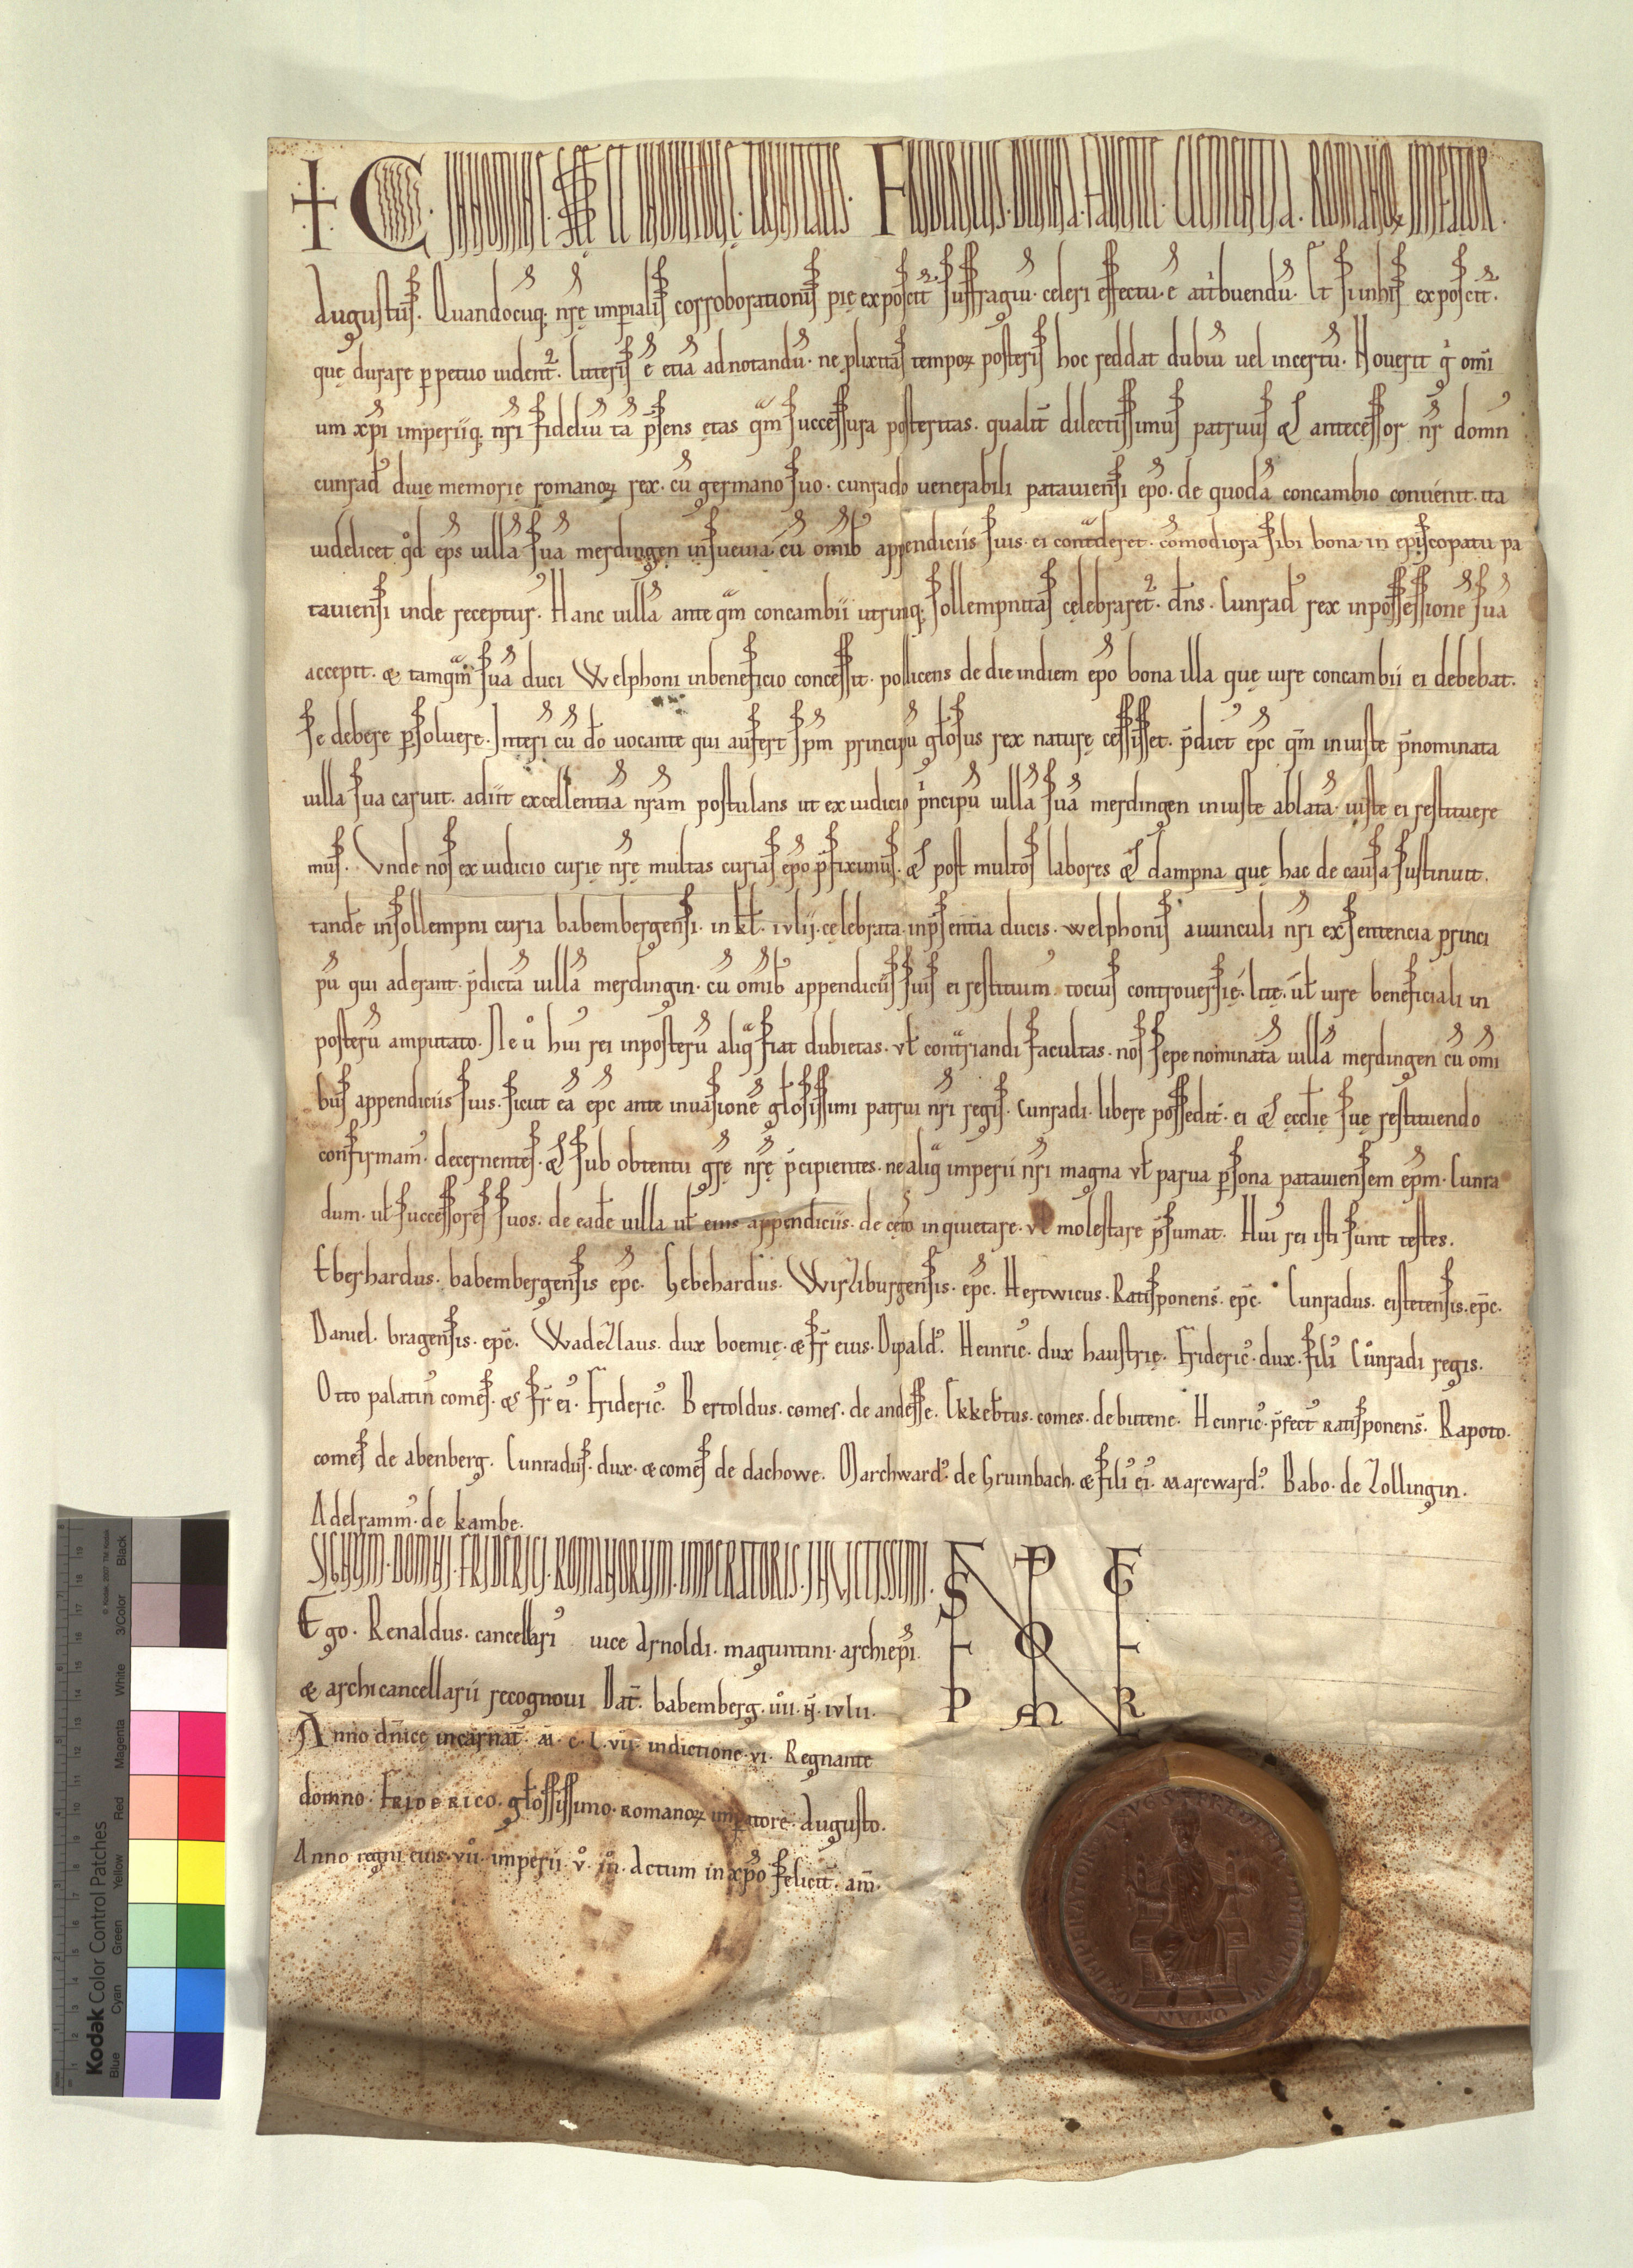 ✝ C. IN NOMINE SCE ET INDIVIDUE TRINITATIS. FRIDERICUS DIVINA FAVENTE CLEMENTIA ROMANOꝜ IMPATOR.
Augustus. Quandocūq; nrę imp̄ialis corroborationis pię exposcit᷑ suffragiū. celeri effectu. ē att'buendū. Et si in his exposcit᷑.
quę durare ꝑpetuo uident᷑. litteris ē etiā adnotandū. ne ꝓlixitas tempoꝝ posteris hoc reddat dubiū uel incertū. Nouerit g̊ omī
um xp̄i imperiiq; nr̄i fideliū tā p̄sens ętas q̄m successura posteritas. qualit̄ dilectissimus patruus & antecessor nr̄ domn᾿
cunrad᾿ diuę memorię romanoꝝ rex. cū germano suo. cunrado uenerabili patauiensi ep̄o. de quodā concambio conuenit. ita
uidelicet qd̊ ep̄s uillā suā merdingen in sueuia. cū omīb᾿ appendiciis suis. ei cont̄deret. cōmodiora sibi bona in episcopatu pa
tauiensi inde recepturus. Hanc uillā ante q̄m concambii utrinq; sollempnitas cęlebraret᷑. dn̄s. Cunrad᾿ rex in possessionē suā
accepit. & tamq̄m suā duci Welphoni in beneficio concessit. pollicens de die in diem ep̄o bona illa quę iure concambii ei debebat.
se debere ꝑsoluere. Interī cū dō uocante qui aufert sp̄m principū gl̄osus rex naturę cessisset. p̄dict᾿ ep̄c q̄m iniuste p̄nominata
uilla sua caruit. adiit excellentiā nr̄am postulans ut ex iudicio p'ncipū uillā suā merdingen iniuste ablatā iuste ei restituere
mus. Vnde nos ex iudicio curię nr̄ę multas curias ep̄o p̄fiximus. & post multos labores & dampna quę hac de causa sustinuit.
tandē in sollempni curia babembergensi. in kl̄. iulij. cęlebrata. in p̄sentia ducis. welphonis auunculi nr̄i ex sentencia princi
pū qui aderant. p̄dictā uillā merdingin. cū omīb᾿ appendiciis suis ei restituim᾿. tocius controuersię. litę. ul̄ iure beneficiali in
posterū amputato. Ne ů hui᾿ rei in posterū aliq̄ fiat dubietas. ul̄ contrariandi facultas. nos sepe nominatā uillā merdingen cū omī
bus appendiciis suis. sicut eā ep̄c ante inuasionē gl̄osissimi patrui nr̄i regis. Cunradi. libere possedit. ei & ęccl̄ię suę restituendo
confirmam᾿. decernentes. & sub obtentu gr̄ę nr̄ę p'cipientes. ne aliq̄ imperii nr̄i magna ul̄ parua ꝑsona patauiensem ep̄m. Cunra
dum. ul̄ successores suos. de eadē uilla ul̄ eius appendiciis. de cęt̄o inquietare. ul̄ molestare p̄sumat. Hui᾿ rei isti sunt testes.
Eberhardus. babembergensis ep̄c. Gebehardus. Wirziburgensis. ep̄c. Hertwicus. Ratisponens̄. ep̄c. Cunradus. eistetensis. ep̄c.
Daniel. bragensis. ep̄c. Wadezlaus. dux boemię. & fr̄ eius. Dipald᾿. Heinric᾿. dux haustrię. Frideric᾿. dux. fili᾿ Cůnradi regis.
Otto palatin᾿ comes. & fr̄ ei᾿. Frideric᾿. Bertoldus. comes. de andesse. Ekkeb̄tus. comes. de butene. Heinric᾿. p̄fect᾿ ratisponens̄. Rapoto.
comes de abenberg. Cunradus. dux. & comes de dachowe. Marchward᾿. de Gruinbach. & fili᾿ ei᾿. marcward᾿. Babo. de Zollingin.
Adelramm᾿. de kambe.
SIGNUM. DOMNI. FRIDERICI. ROMANORUM. IMPERATORIS. INVICTISSIMI.
Ego. Renaldus. cancellari᾿ uice Arnoldi. maguntini. archiep̄i.
& archicancellarii recognoui Dat̄. babemberg. iiii. n̄. iulii.
Anno dn̄ice incarnat̄. m̄. c. l. vii. indictione. vi. Regnante
domno. FRIDERICO. gl̄osissimo. romanoꝝ imꝑatore. Augusto.
Anno regni eius. vii. imperii. v̊. iii. Actum in xp̄o feliciť. am̄.
Kodak Color Control Patches
Blue Cyan Green Yellow Red Magenta White 3/Color Black
© Kodak, 2007 TM: Kodak